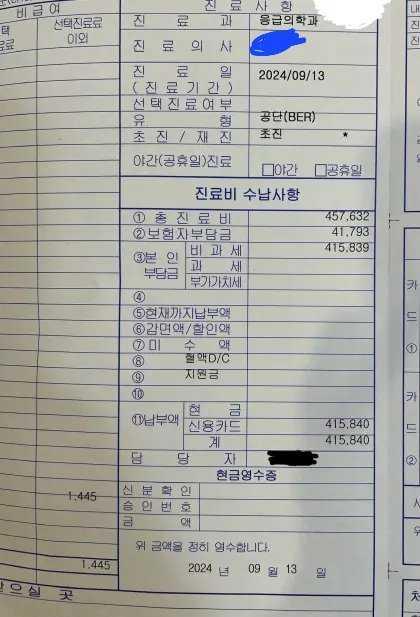 비 급 여
선택진료료
이외
진 료 사 항
진 료 과 응급의학과
진 료 의 사
진 료 일
(진료기간) 2024/09/13
선택진료여부
유 형 공단(BER)
초진/재진 초진 *
야간(공휴일)진료 □야간 □공휴일
진료비 수납사항
① 총 진 료 비 457,632
②보험자부담금 41,793
③본 인
부담금
비 과 세 415,839
과 세
부가가치세
④
⑤현재까지납부액
⑥감면액/할인액
⑦미 수 액
⑧ 혈액D/C
⑨ 지원금
⑩
⑪납부액
현 금
신용카드 415,840
계 415,840
담 당 자
현금영수증
신 분 확 인
승 인 번 호
금 액
1,445
1,445
위 금액을 정히 영수합니다.
2024 년 09 월 13 일
받으실 곳
카
드
①
카
드
②